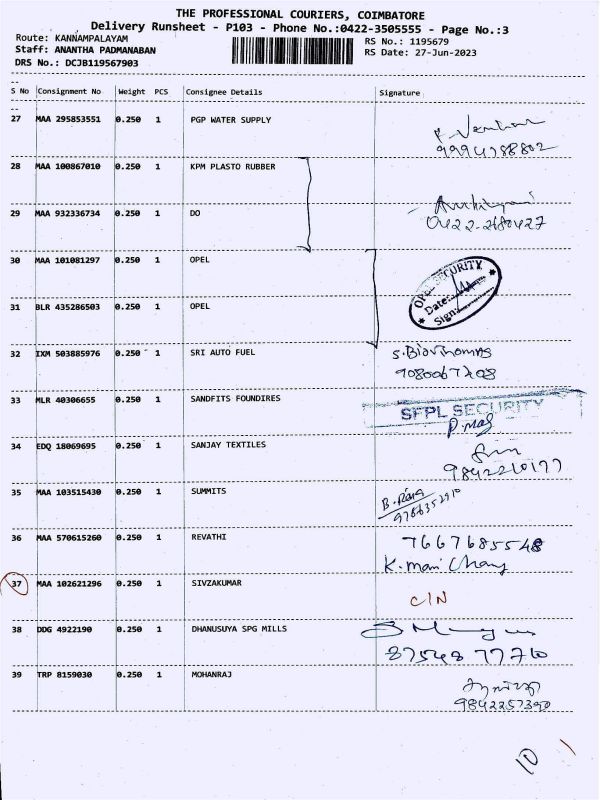 THE PROFESSIONAL COURIERS, COIMBATORE
Delivery Runsheet - P103 - Phone No.:0422-3505555 - Page No.:3
Route: KANNAMPALAYAM RS No.: 1195679
Staff: ANANTHA PADMANABAN RS Date: 27-Jun-2023
DRS No.: DCJB119567903
S No Consignment No Weight PCS Consignee Details Signature
27 MAA 295853551 0.250 1 PGP WATER SUPPLY
9994788802
28 MAA 100867010 0.250 1 KPM PLASTO RUBBER
29 MAA 932336734 0.250 1 DO
0422-2680427
30 MAA 101081297 0.250 1 OPEL
OPEL SECURITY
Date:
Signa
31 BLR 435286503 0.250 1 OPEL
32 IXM 503885976 0.250 1 SRI AUTO FUEL
33 MLR 40306655 0.250 1 SANDFITS FOUNDIRES
SFPL SECURITY
34 EDQ 18069695 0.250 1 SANJAY TEXTILES
9842210177
35 MAA 103515430 0.250 1 SUMMITS
9786352910
36 MAA 570615260 0.250 1 REVATHI
7667685548
K. Mani
37 MAA 102621296 0.250 1 SIVZAKUMAR
C/N
38 DDG 4922190 0.250 1 DHANUSUYA SPG MILLS
87548 77710
39 TRP 8159030 0.250 1 MOHANRAJ
9842257390
10